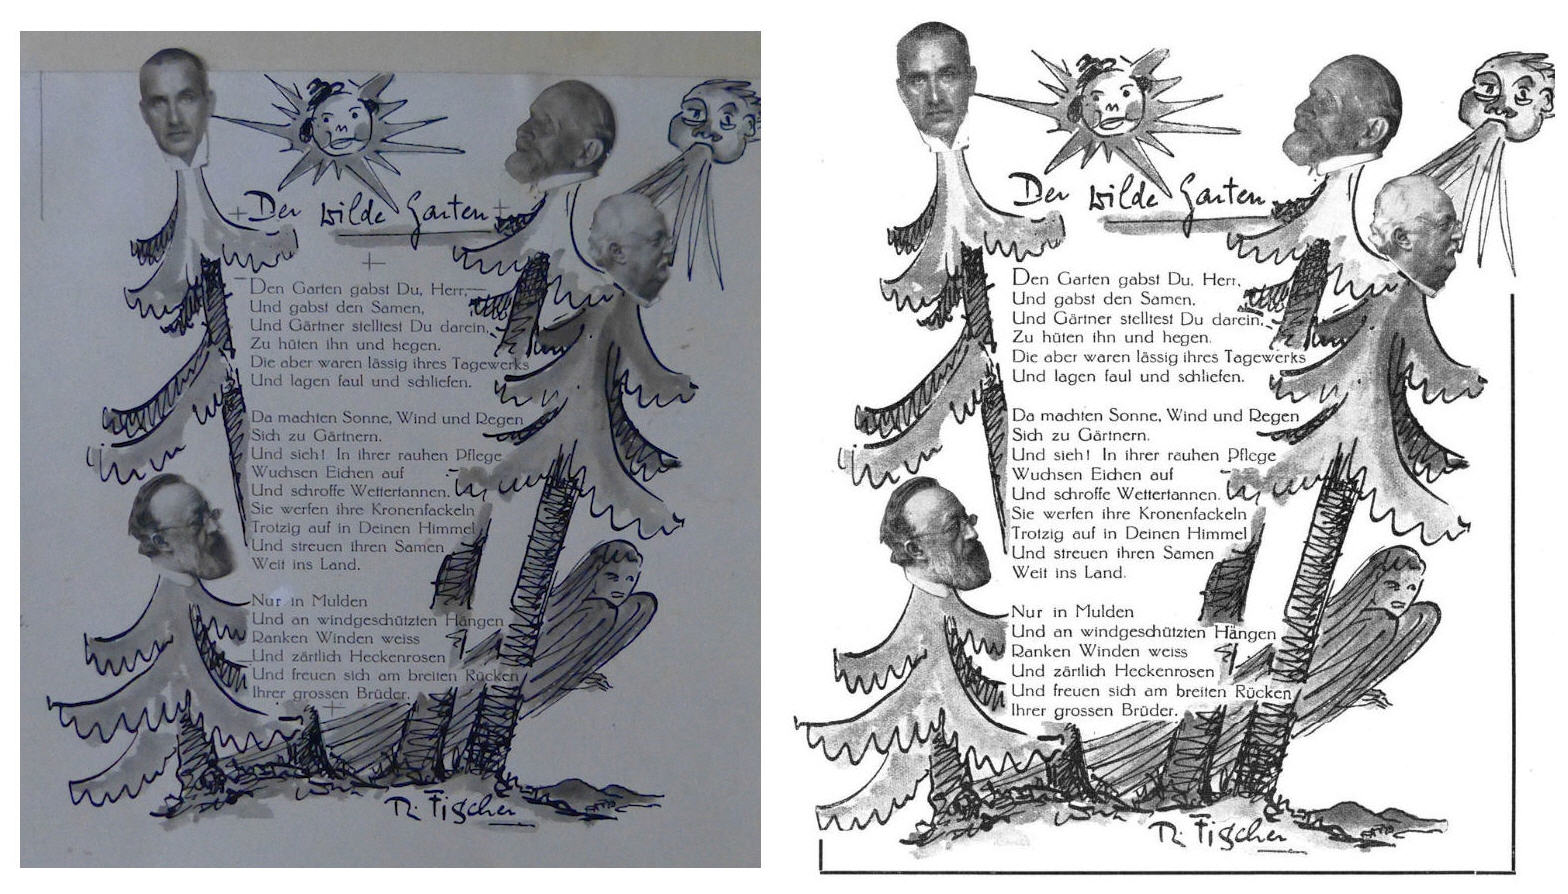 Der wilde Garten
Den Garten gabst Du, Herr,
Und gabst den Samen,
Und Gärtner stelltest Du darein,
Zu hüten ihn und hegen.
Die aber waren lässig ihres Tagewerks
Und lagen faul und schliefen.
Da machten Sonne, Wind und Regen
Sich zu Gärtnern.
Und sieh! In ihrer rauhen Pflege
Wuchsen Eichen auf
Und schroffe Wettertannen.
Sie werfen ihre Kronenfackeln
Trotzig auf in Deinen Himmel
Und streuen ihren Samen
Weit ins Land.
Nur in Mulden
Und an windgeschützten Hängen
Ranken Winden weiss
Und zärtlich Heckenrosen
Und freuen sich am breiten Rücken
Ihrer grossen Brüder.
R. Fischer
Der wilde Garten
Den Garten gabst Du, Herr,
Und gabst den Samen,
Und Gärtner stelltest Du darein,
Zu hüten ihn und hegen.
Die aber waren lässig ihres Tagewerks
Und lagen faul und schliefen.
Da machten Sonne, Wind und Regen
Sich zu Gärtnern.
Und sieh! In ihrer rauhen Pflege
Wuchsen Eichen auf
Und schroffe Wettertannen.
Sie werfen ihre Kronenfackeln
Trotzig auf in Deinen Himmel
Und streuen ihren Samen
Weit ins Land.
Nur in Mulden
Und an windgeschützten Hängen
Ranken Winden weiss
Und zärtlich Heckenrosen
Und freuen sich am breiten Rücken
Ihrer grossen Brüder.
R. Fischer